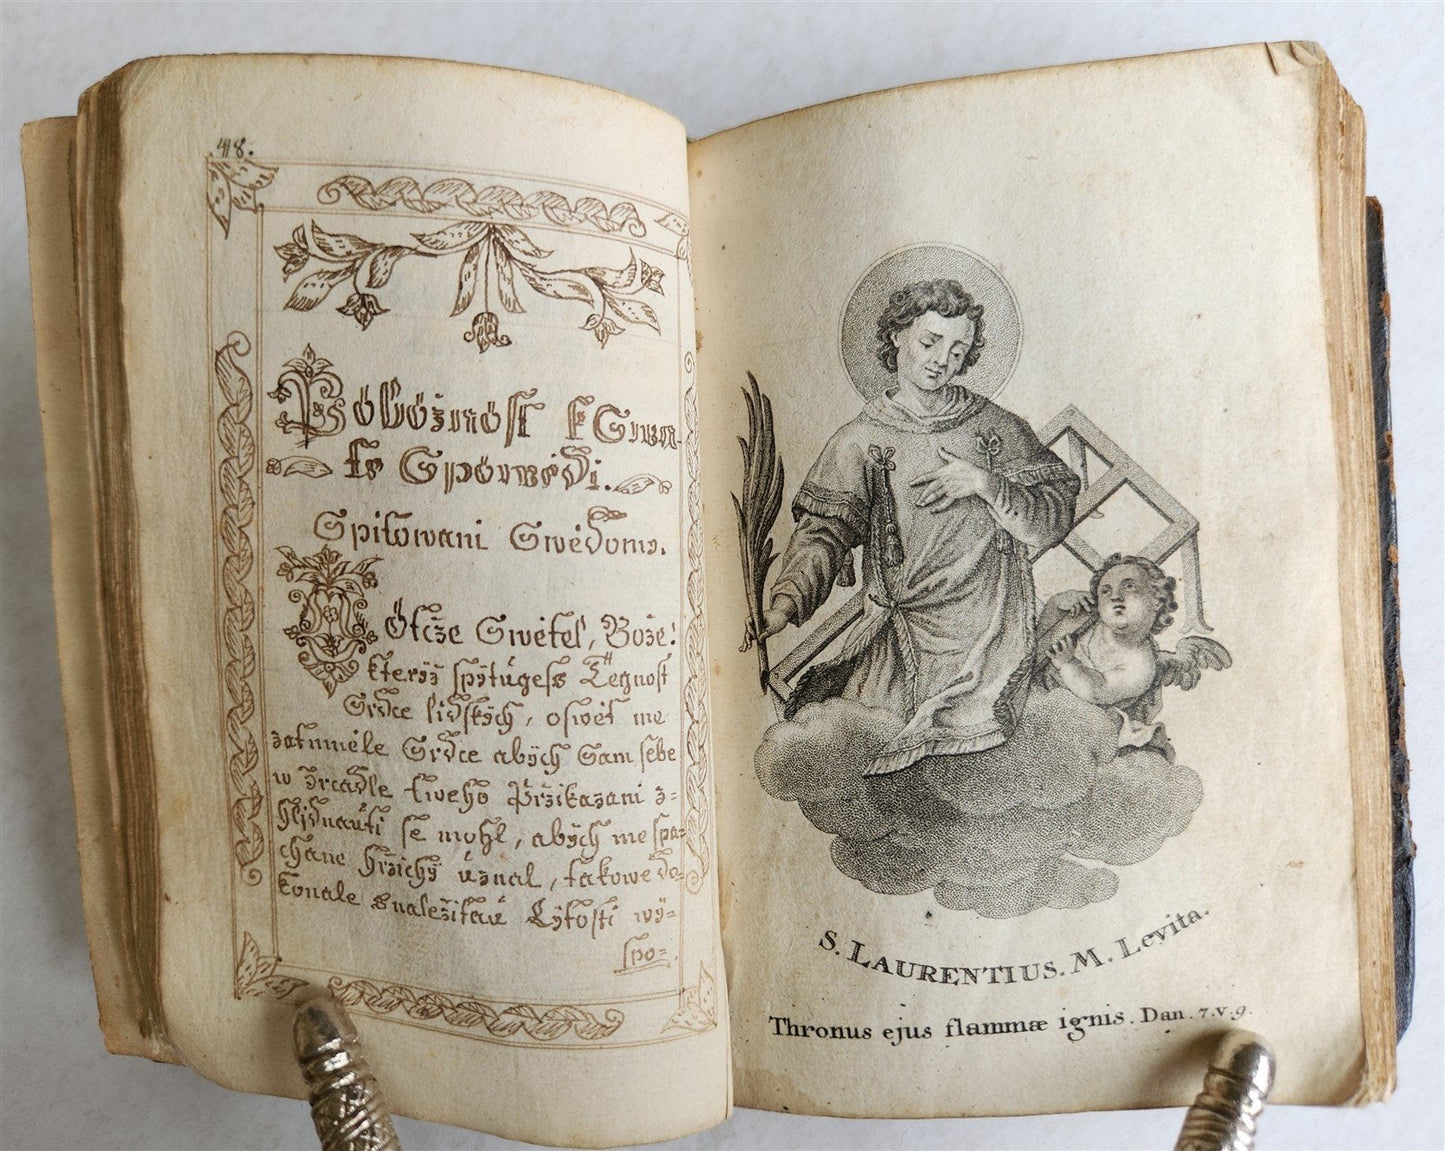 48.
Pobožnost k Swa-
te Spowědi.
Spitowani Swědomi.
O Otcže Swětel, Bože!
kterȳž spȳtugess Tegnost
Srdce lidskych, oswět me
zatmněle Srdce abȳch Sam sebe
w zrcadle tweho Pržikazani z=
hlidnauti se mohl, abȳch me spa=
chane hržichȳ úznal, takowe do=
konale a naležitau Lȳtosti wȳ=
spo=
S. LAURENTIUS. M. Levita.
Thronus ejus flammæ ignis. Dan. 7. v. 9.